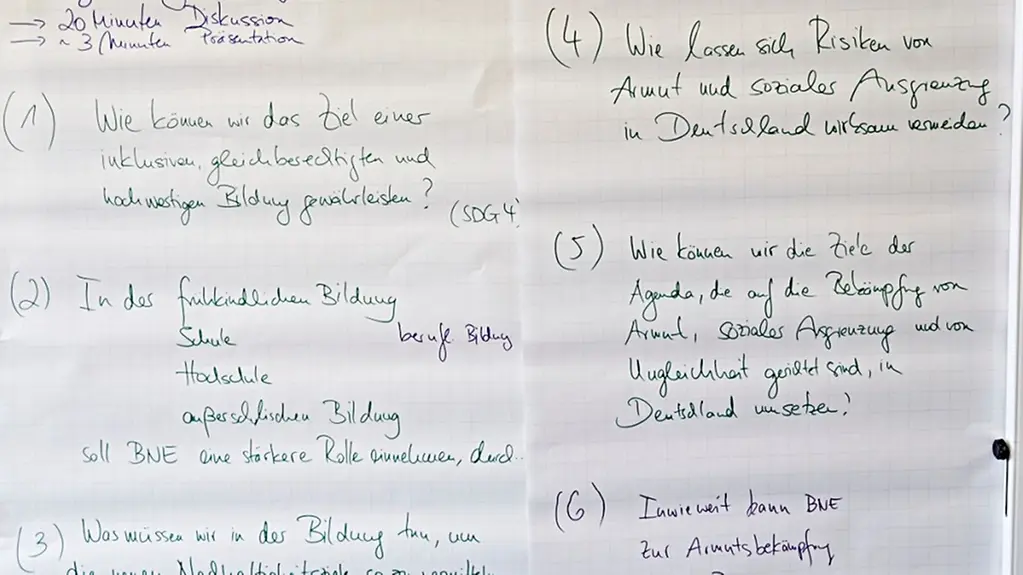 → 20 Minuten Diskussion
→ ~ 3 Minuten Präsentation
(1) Wie können wir das Ziel einer
inklusiven, gleichberechtigten und
hochwertigen Bildung gewährleisten?
(SDG 4)
(2) In der frühkindlichen Bildung
Schule
berufl Bildung
Hochschule
außerschulischen Bildung
soll BNE eine stärkere Rolle einnehmen, durch..
(3) Was müssen wir in der Bildung tun, um
die neuen Nachhaltigkeitsziele so zu
(4) Wie lassen sich Risiken von
Armut und sozialer Ausgrenzung
in Deutschland wirksam vermeiden?
(5) Wie können wir die Ziele der
Agenda, die auf die Bekämpfung von
Armut, sozialer Asgrenzung und von
Ungleichheit gerichtet sind, in
Deutschland umsetzen?
(6) Inwieweit kann BNE
zur Armutsbekämpfung